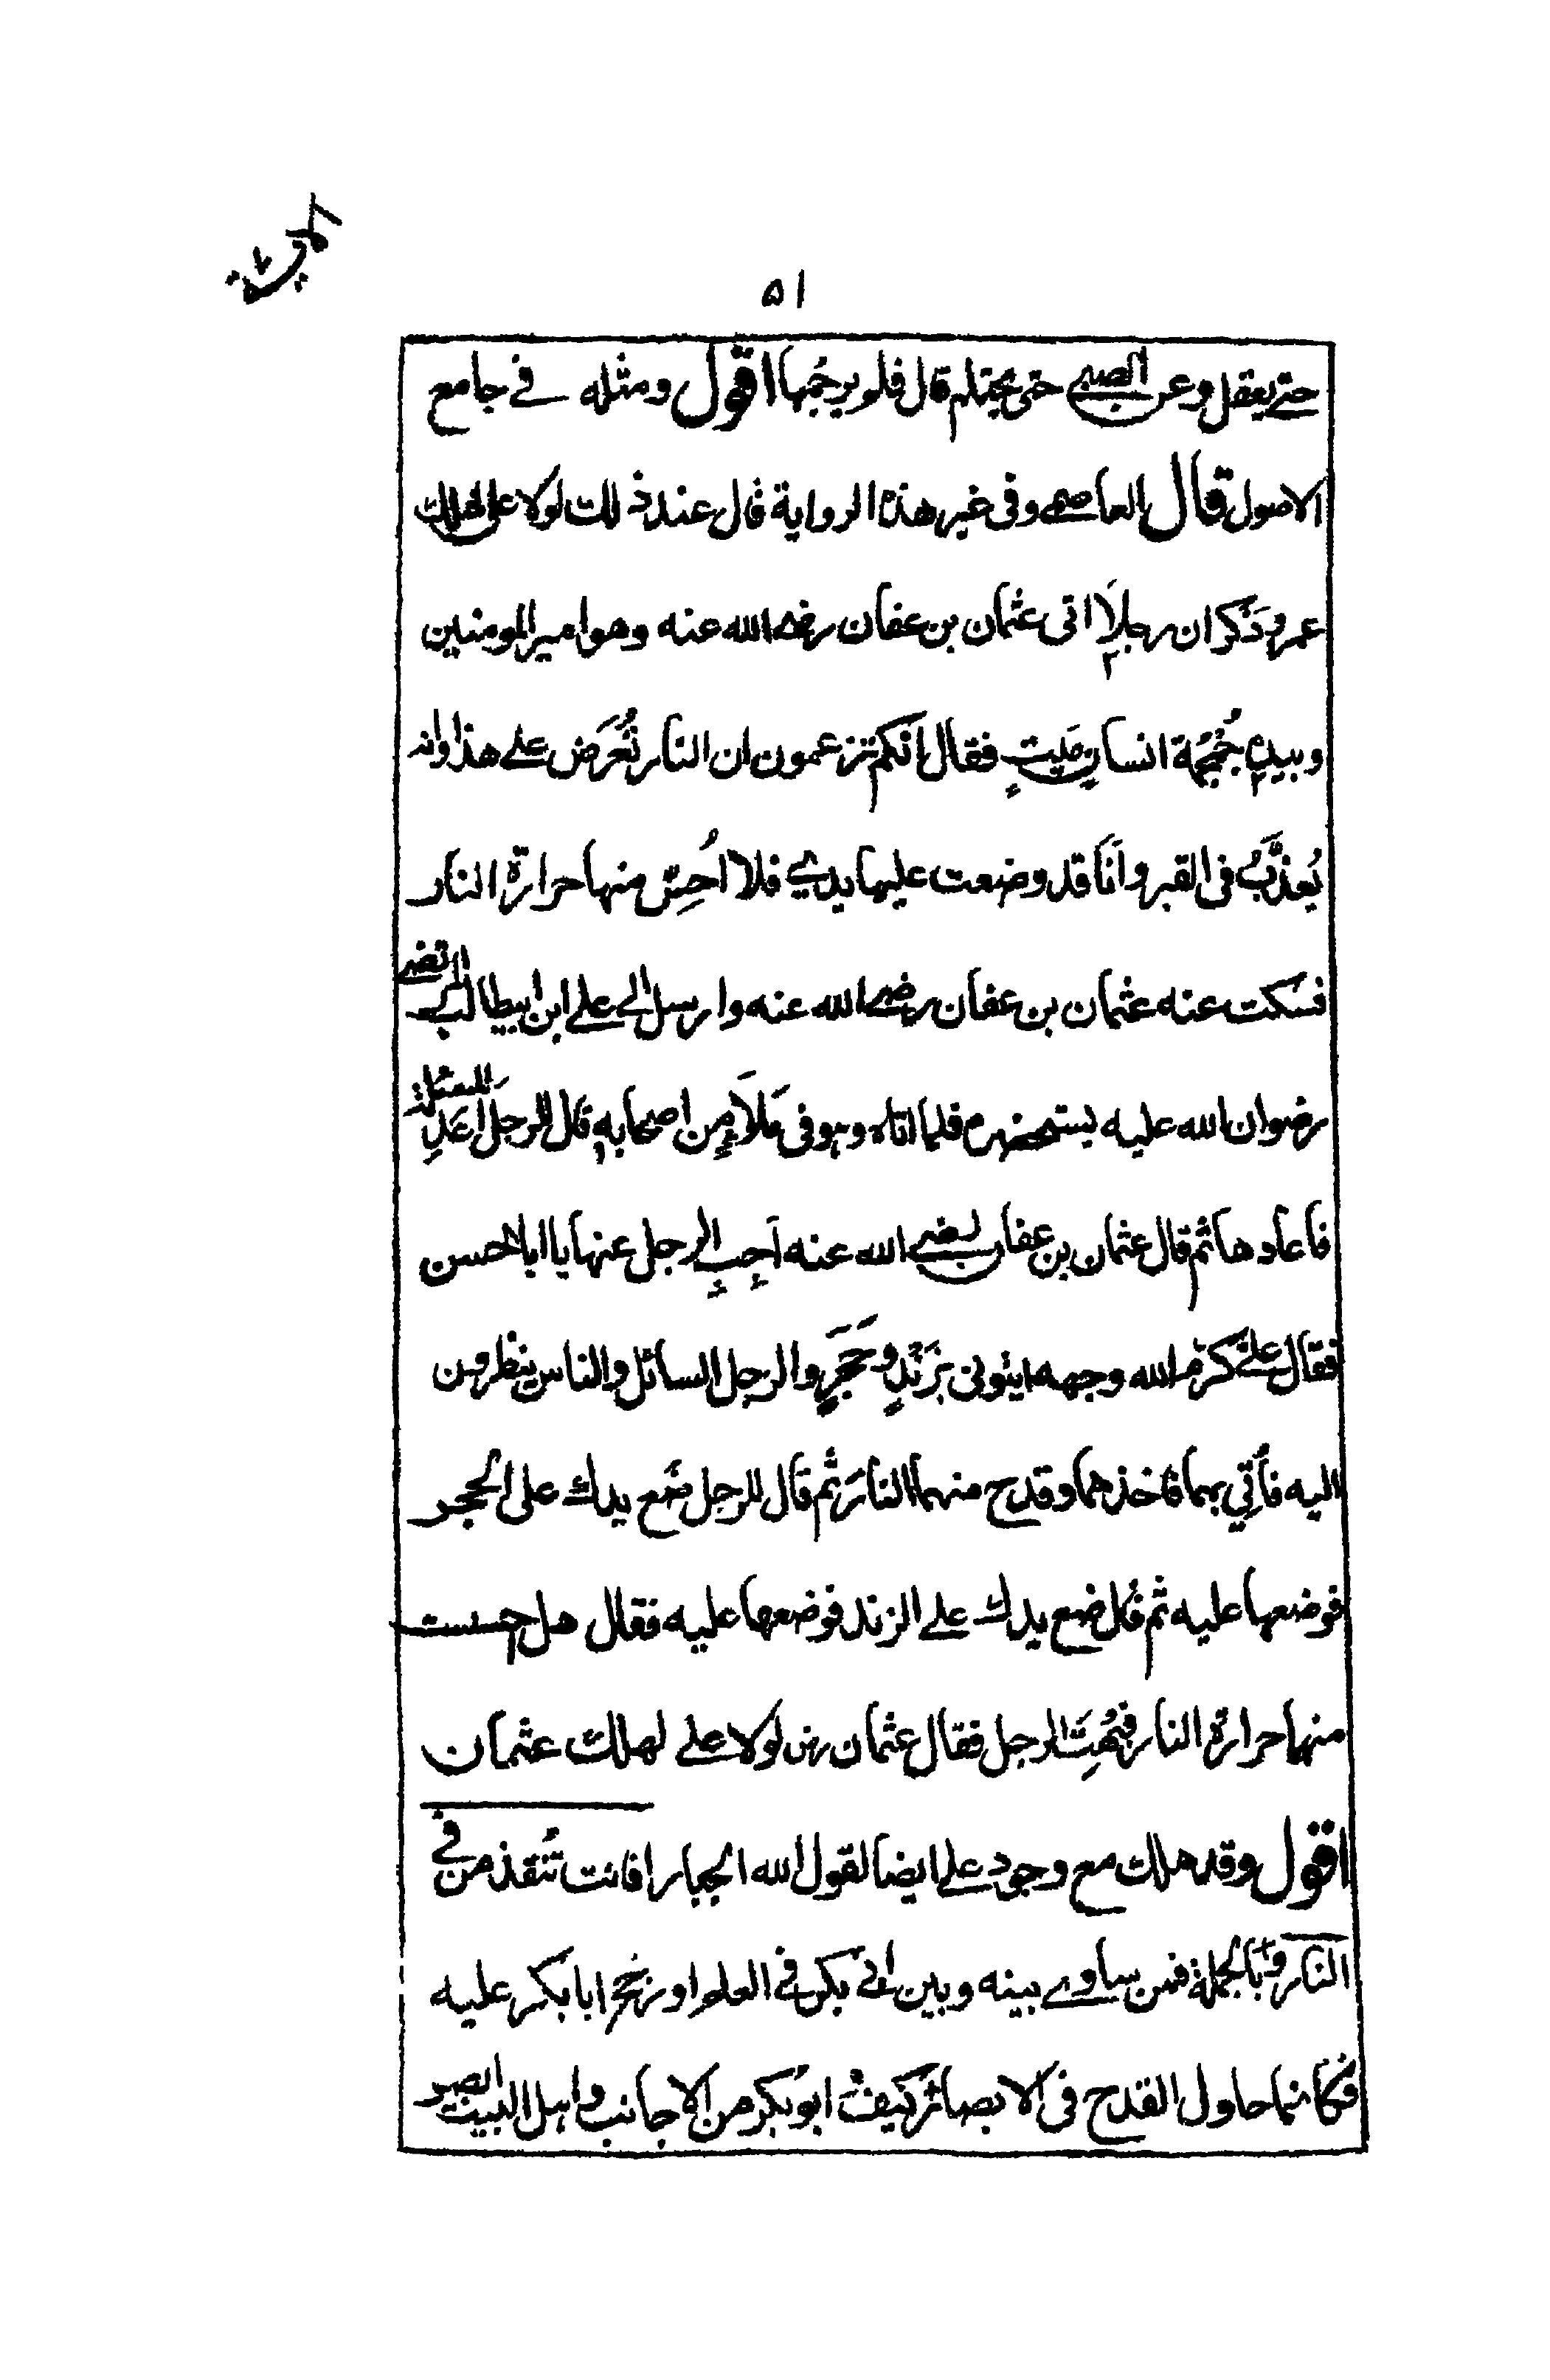 ۵۱
حتے يعقل وعن الصبے حتى يحتلم قال فلم يرجمها اقول ومثله فے جامع
الاصول قال العاصمے وفى غير هذه الرواية قال عند ذلك لولا على لهلك
عمر وذكر ان رجلا اتى عثمان بن عفان رضے الله عنه وهو امير المومنين
وبيده جُمجُمة انسانٍ ميتٍ فقال انكم تزعمون ان النار تُعرَض علے هذا وانه
يُعذَّبُ فى القبر وانَا قد وضعت عليها يدي فلا اُحِسّ منها حرارة النار
فسكت عنه عثمان بن عفان رضے الله عنه وارسل الے علے ابن ابيطالب المرتضے
رضوان الله عليه يستحضره فلما اتاه وهو فى مَلَاءٍ مِن اصحابه قال للرجل اَعِدِ المسئلة
فاعادها ثم قال عثمان بن عفان رضے الله عنه اَجِبِ الرجل عنها يا ابا الحسن
فقال علے كرّم الله وجهه ايتونى بزَنْدٍ وحَجَرٍ والرجل السائل والناس ينظرون
اليه فاُتِي بهما فاخذهما وقدح منهما النارَ ثم قال للرجل ضَع يدك على الحجر
فوضعها عليه ثم قال ضع يدك علے الزند فوضعها عليه فقال هل احسست
منهما حرارة النار فبُهِتَ الرجل فقال عثمان رض لولا علے لهلك عثمان
اقول وقد هلك مع وجود علے ايضا لقول الله الجبار افانت تُنقذ من فے
النار وبالجملة فمن ساوے بينه وبين ابے بكر فے العلم او رجح ابا بكر عليه
فكانما حاول القدح فى الابصار كيف ابو بكر من الاجانب واهل البيت ابصر